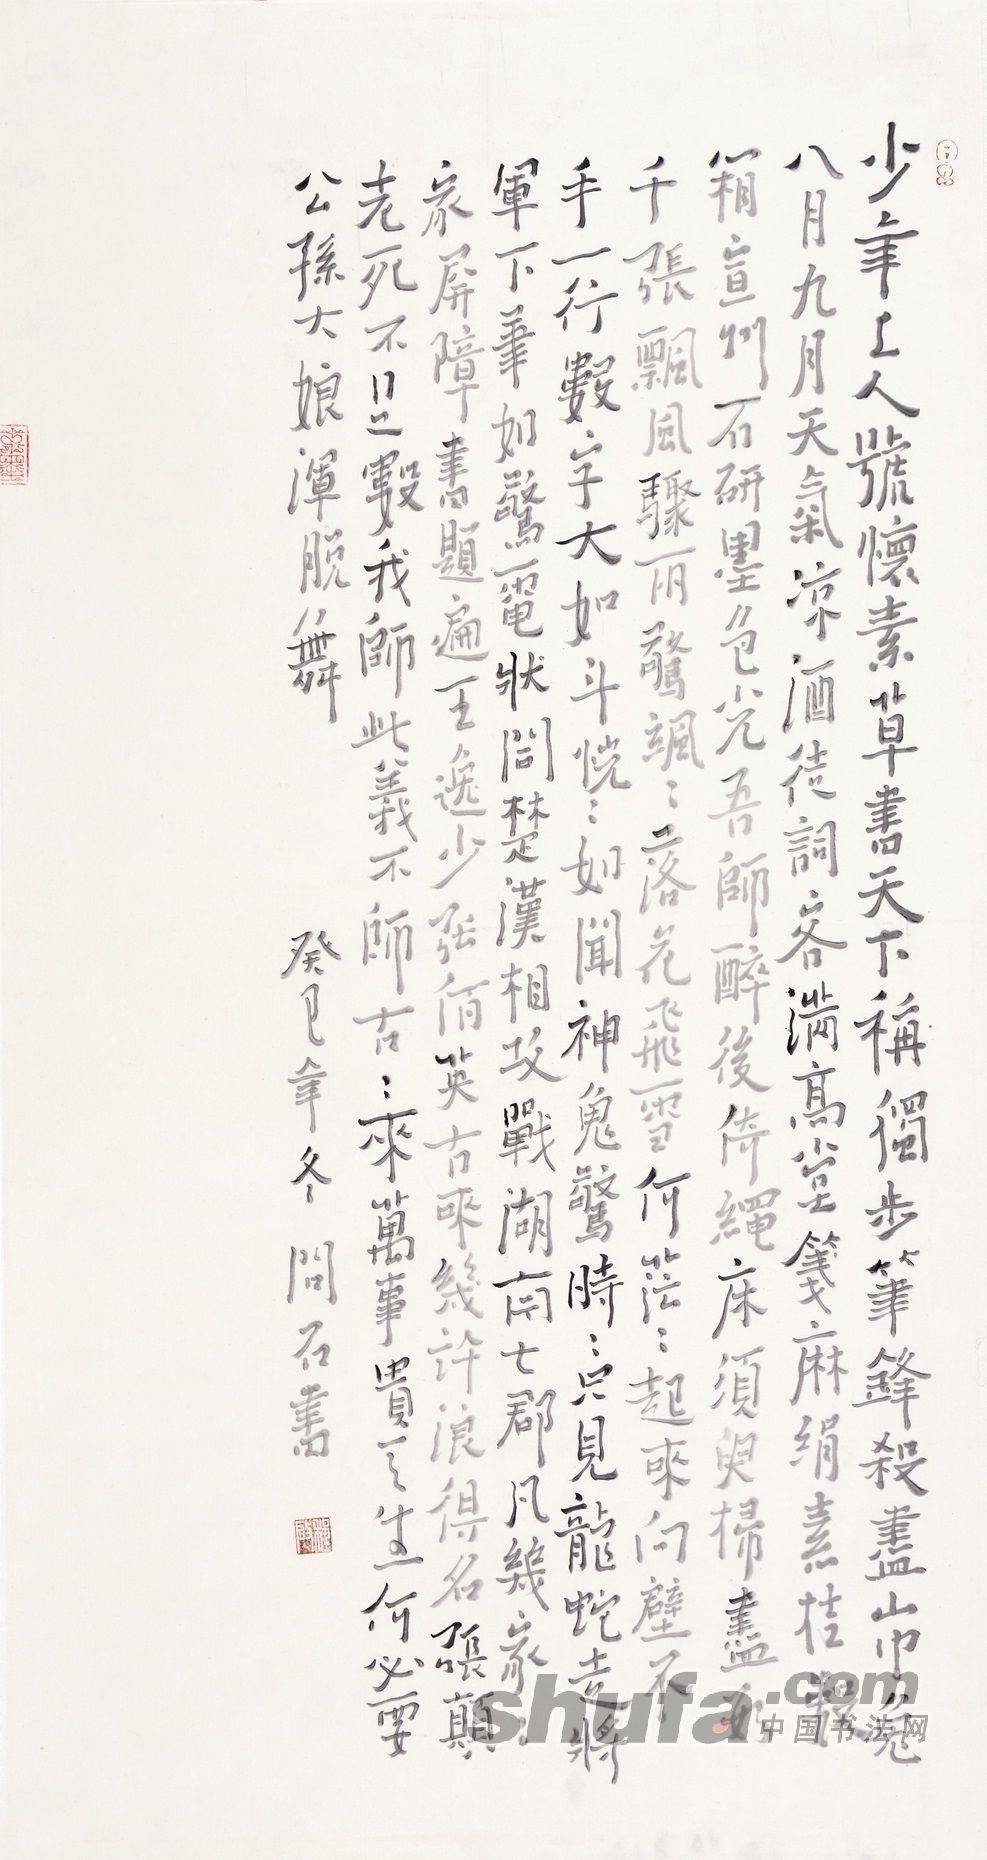 少年上人號懷素草書天下稱獨步筆鋒殺盡山中兔
八月九月天氣涼酒徒詞客滿高堂箋麻絹素排數
箱宣州石研墨色光吾師醉後倚繩床須臾掃盡數
千張飄風驟雨驚颯〻落花飛雪何茫〻起來向壁不
手一行數字大如斗恍〻如聞神鬼驚時〻只見龍蛇走將
軍下筆如驚電狀同楚漢相攻戰湖南七郡凡幾家〻
家屏障書題遍王逸少張伯英古來幾許浪得名張顛
老死不足數我師此義不師古〻來萬事貴天生何必要
公孫大娘渾脫舞 癸巳年冬 問石書
shufa.com
中国书法网